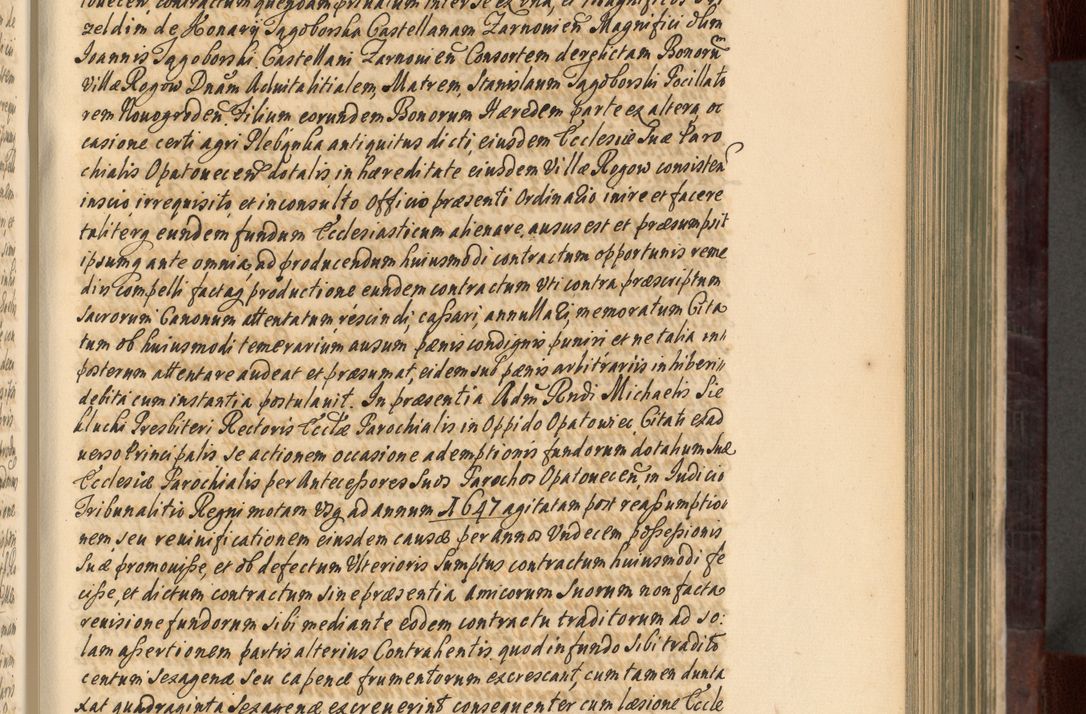 tovecen, contractum quendam privatum inter se ex una, et Magnificos
zeldim de Konary Jagoborska Castellanam Zarnovien Magnifici olim
Joannis Jagoborski Castellani Zarnovien Consortem derelictam Bonorum
Villæ Rogow Dnam Advitalitialem, Matrem, Stanislaum Jagoborski Pocillato
rem Novogroden. Filium eorundem Bonorum Hæredem parte ex altera, oc
casione certi agri Plebanka antiquitus dicti, eiusdem Ecclesiæ Suæ Paro
chialis Opatovecen dotalis, in hæreditate eiusdem Villæ Rogow consisten
inscio, irrequisito, et inconsulto Officio præsenti Ordinario inire et facere
taliterq eundem fundum Ecclesiasticum alienare, ausus est et præsumpsit
ipsumq ante omnia, ad producendum huiusmodi contractum opportunis reme
diis compelli factaq productione eundem contractum Uti contra præscriptum
Sacrorum Canonum attentatum rescindi, cassari, annullari, memoratum Cita
tum ob huiusmodi temerarium ausum pænis condignis puniri et ne talia in
posterum attentare audeat et præsumat, eidem sub pænis arbitrariis inhiberi
debita cum instantia postulavit. In præsentia Adm Rndi Michaelis Sie
kluchi Presbiteri Rectoris Ecclæ Parochialis in Oppido Opatowiec Citati ex ad
verso Principalis se actionem occasione ademptionis fundorum dotalium Suæ
Ecclesiæ Parochialis per Antecessores Suos Parochos Opatovecen, in Judicio
Tribunalitio Regni motam Usq ad annum 1647 agitatam post reassumptio
nem, seu revivificationem eiusdem causæ per annos Undecem possessionis
Suæ promovisse, et ob defectum Ulterioris Sumptus contractum huiusmodi fe
cisse, et dictum contractum sine præsentia amicorum Suorum non facta
revisione fundorum sibi mediante eodem contractu traditorum ad so:
lam assertionem partis alterius Contrahentis quod in fundo Sibi tradito
centum Sexagenæ seu capenæ frumentorum excrescant, cum tamen dunta
xat quadraginta Sexagenæ excreverint consequenter cum læsione Eccle